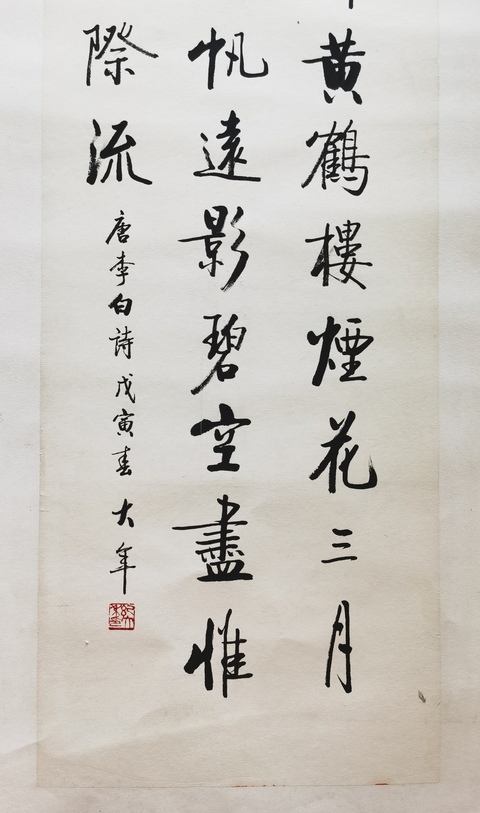 黄鶴樓煙花三月
帆遠影碧空盡惟
際流
唐李白詩戊寅春大年